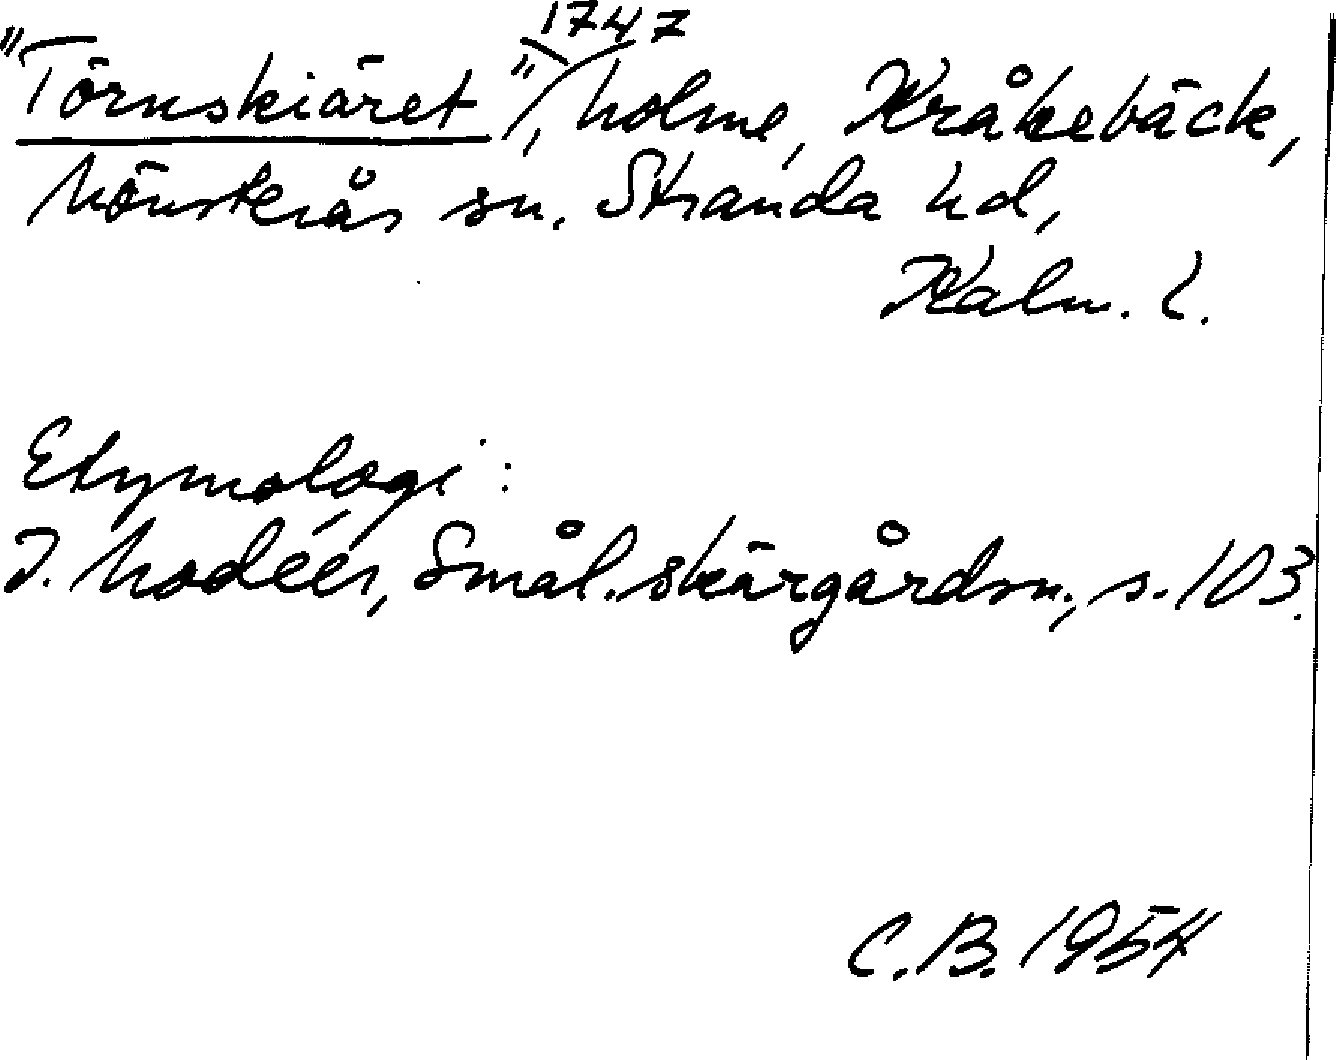 "Törnskiäret" 1747, holme, Kråkebäck,
Mönsterås sn. Stranda hd,
Kalm. l.
Etymologi:
I. Modéer, Smål. skärgårdsn., s. 103.
C.B. 1954